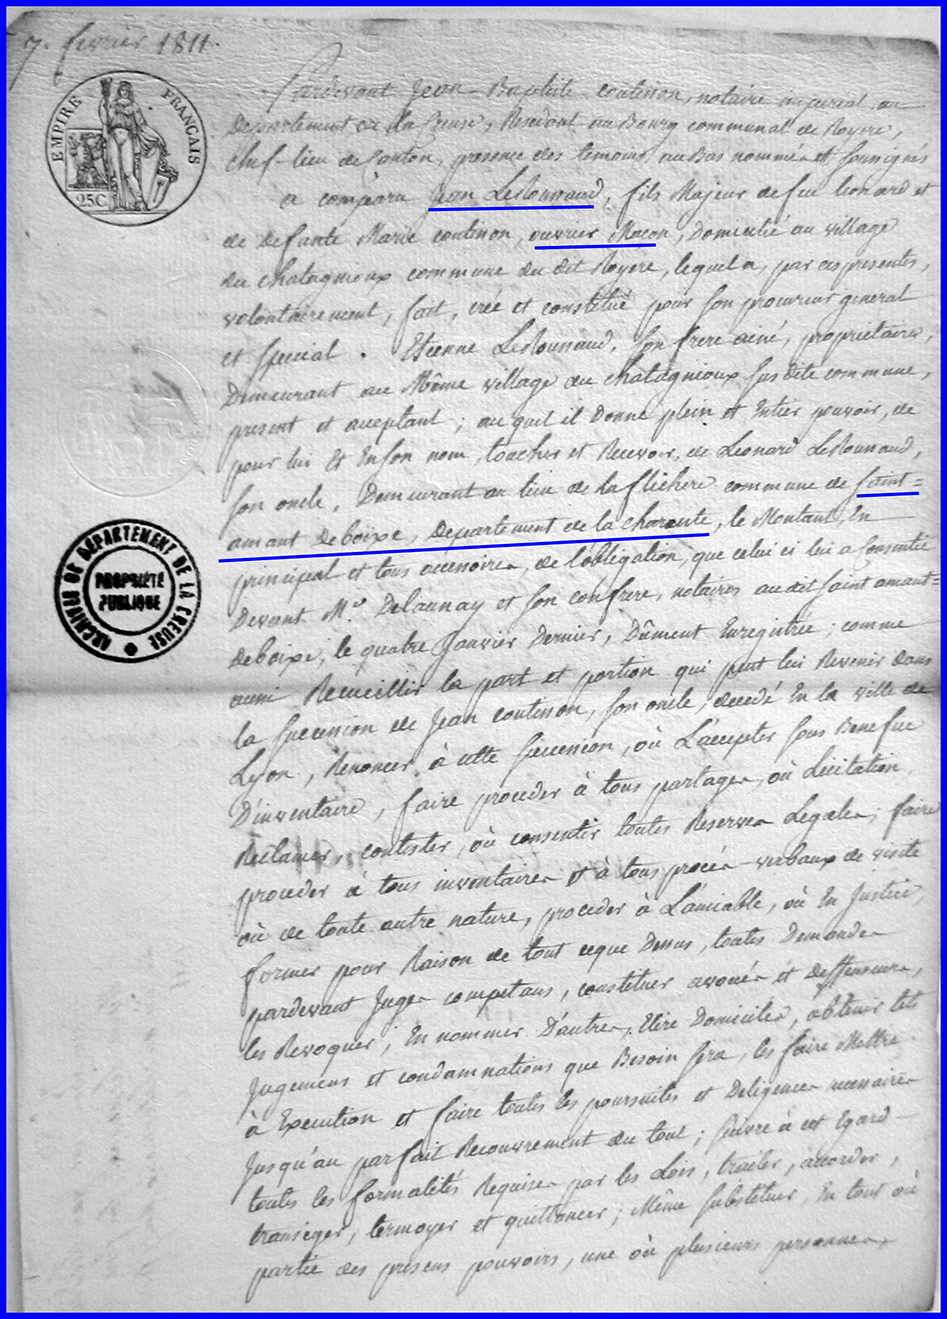 7. fevrier 1811.
EMPIRE FRANÇAIS
25C
ARCHIVES DU DÉPARTEMENT DE LA CREUSE
PROPRIÉTÉ
PUBLIQUE
Pardevant Jean-Baptiste coutisson, notaire imperial au
Departement de la Creuse, Résidant au Bourg communal de Royere,
chef-lieu de Canton, presence des temoins au Bas nommés et soussignés
a comparu Jean Leslounaud, fils Majeur de feu lionard et
de defunte Marie coutisson, ouvrier Macon, Domicilié au village
du chatagnioux commune du dit Royere, lequel a, par ces presentes,
volontairement, fait, créé et constitué pour son procureur general
et special. Etienne Leslounaud, son frere ainé, propriétaire,
Demeurant au Même village du chatagnioux sus dite commune,
present et acceptant; au quel il Donne plein et Entier pouvoir, de
pour lui Et En son nom, toucher et Recevoir, de Leonard Leslounaud,
son oncle, Demeurant au lieu de la flichere commune de saint=
amant Deboixe, Departement de la charente, le Montant, En
principal et tous accessoires, de l'obligation, que celui ci lui a Consentie
Devant Me. Delaunay et son confrere, notaires audit saint amant=
Deboixe, le quatre Janvier Dernier, Dûment Enregistrée; comme
aussi Recueillir la part et portion qui peut lui Revenir dans
la succession de Jean coutisson, son oncle, decedé En la ville de
Lyon, Renoncer à cette succession, où L'accepter sous Benefice
D'inventaire, faire proceder à tous partages, où Licitation,
Reclamer, contester, où consentir toutes Reserves Legales; faire
proceder à tous inventaires et à tous procès-verbaux de visite
où de toute autre nature, proceder à L'amiable, où En Justice,
former pour Raison de tout ceque Dessus, toutes Demandes
pardevant Juges competans, constituer avoués et deffenseurs,
les Revoquer, En nommer D'autres, Elire Domiciles, obtenir tels
Jugemens et condamnations que Besoin sera, les faire Mettre
à Execution et faire toutes les poursuites et Deligences necessaires
Jusqu'au parfait Recouvrement du tout; suivre à cet Egard
toutes les formalités Requises par les Lois, traiter, accorder,
transiger, termoyer et quittancer; Même substituer, En tout où
partie des presens pouvoirs, une où plusieurs personnes,